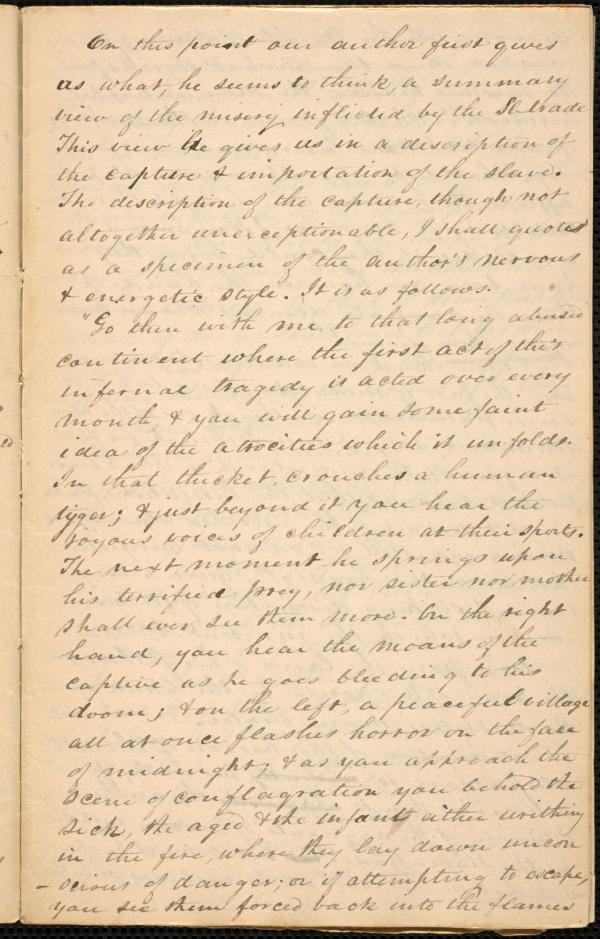 On this point our author first gives
us what, he seems to think, a summary
view of the misery inflicted by the Sl-trade
This view he gives us in a description of
the capture & importation of the slave.
The description of the capture, though not
altogether unexceptionable, I shall quote
as a specimen of the author's nervous
& energetic style. It is as follows.
"Go then with me to that long abused
continent where the first act of this
infernal tragedy is acted over every
month, & you will gain some faint
idea of the atrocities which it unfolds.
In that thicket, crouches a human
tyger; & just beyond it you hear the
joyous voices of children at their sports.
The next moment he springs upon
his terrified prey, nor sister nor mother
shall ever see them more. On the right
hand, you hear the moans of the
captive as he goes bleeding to his
doom; & on the left, a peaceful village
all at once flashes horror on the face
of midnight; & as you approach the
scene of conflagration you behold the
sick, the aged & the infant either writhing
in the fire, where they lay down uncon
-scious of danger; or if attempting to escape,
you see them forced back into the flames